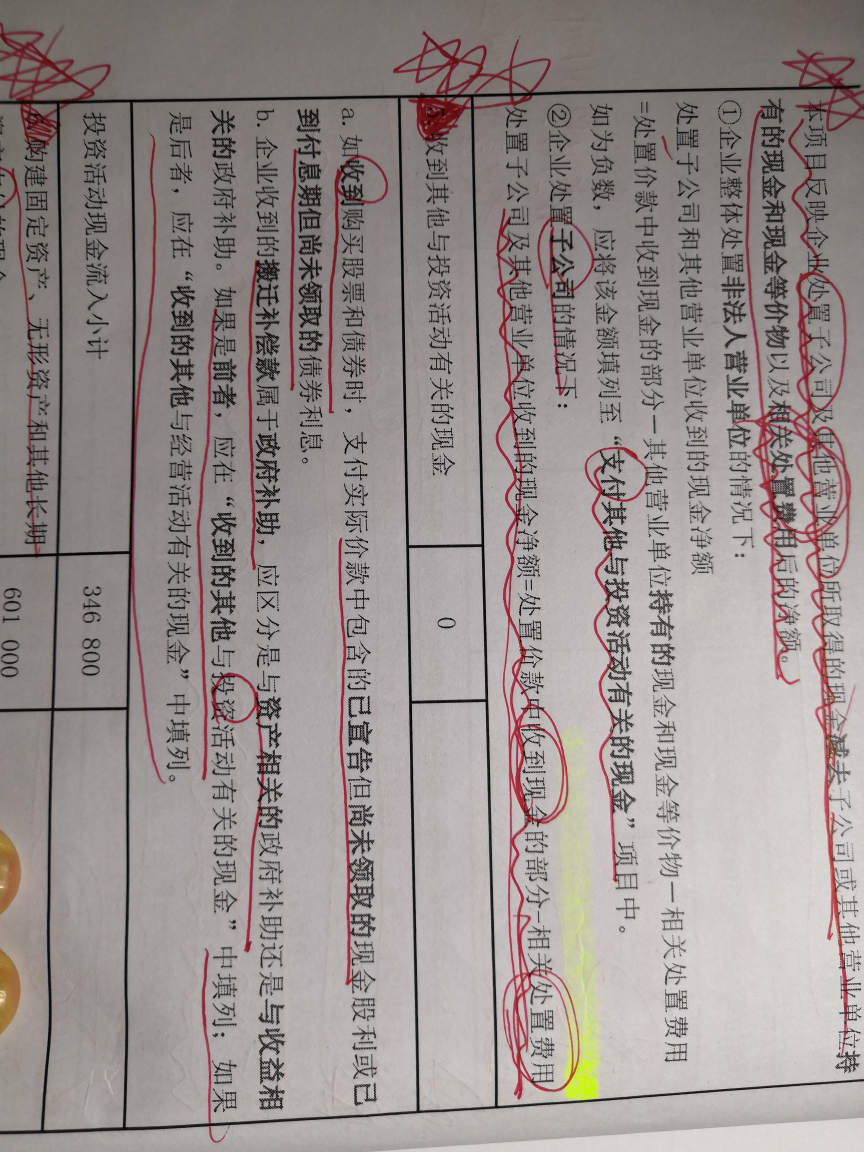 本项目反映企业处置子公司及其他营业单位所取得的现金减去子公司或其他营业单位持
有的现金和现金等价物以及相关处置费用后的净额。
①企业整体处置非法人营业单位的情况下：
处置子公司和其他营业单位收到的现金净额
=处置价款中收到现金的部分－其他营业单位持有的现金和现金等价物－相关处置费用
如为负数，应将该金额填列至“支付其他与投资活动有关的现金”项目中。
②企业处置子公司的情况下：
处置子公司及其他营业单位收到的现金净额=处置价款中收到现金的部分-相关处置费用
收到其他与投资活动有关的现金 0
a. 如收到购买股票和债券时，支付实际价款中包含的已宣告但尚未领取的现金股利或已
到付息期但尚未领取的债券利息。
b. 企业收到的搬迁补偿款属于政府补助，应区分是与资产相关的政府补助还是与收益相
关的政府补助。如果是前者，应在“收到的其他与投资活动有关的现金”中填列；如果
是后者，应在“收到的其他与经营活动有关的现金”中填列。
投资活动现金流入小计 346 800
购建固定资产、无形资产和其他长期 601 000